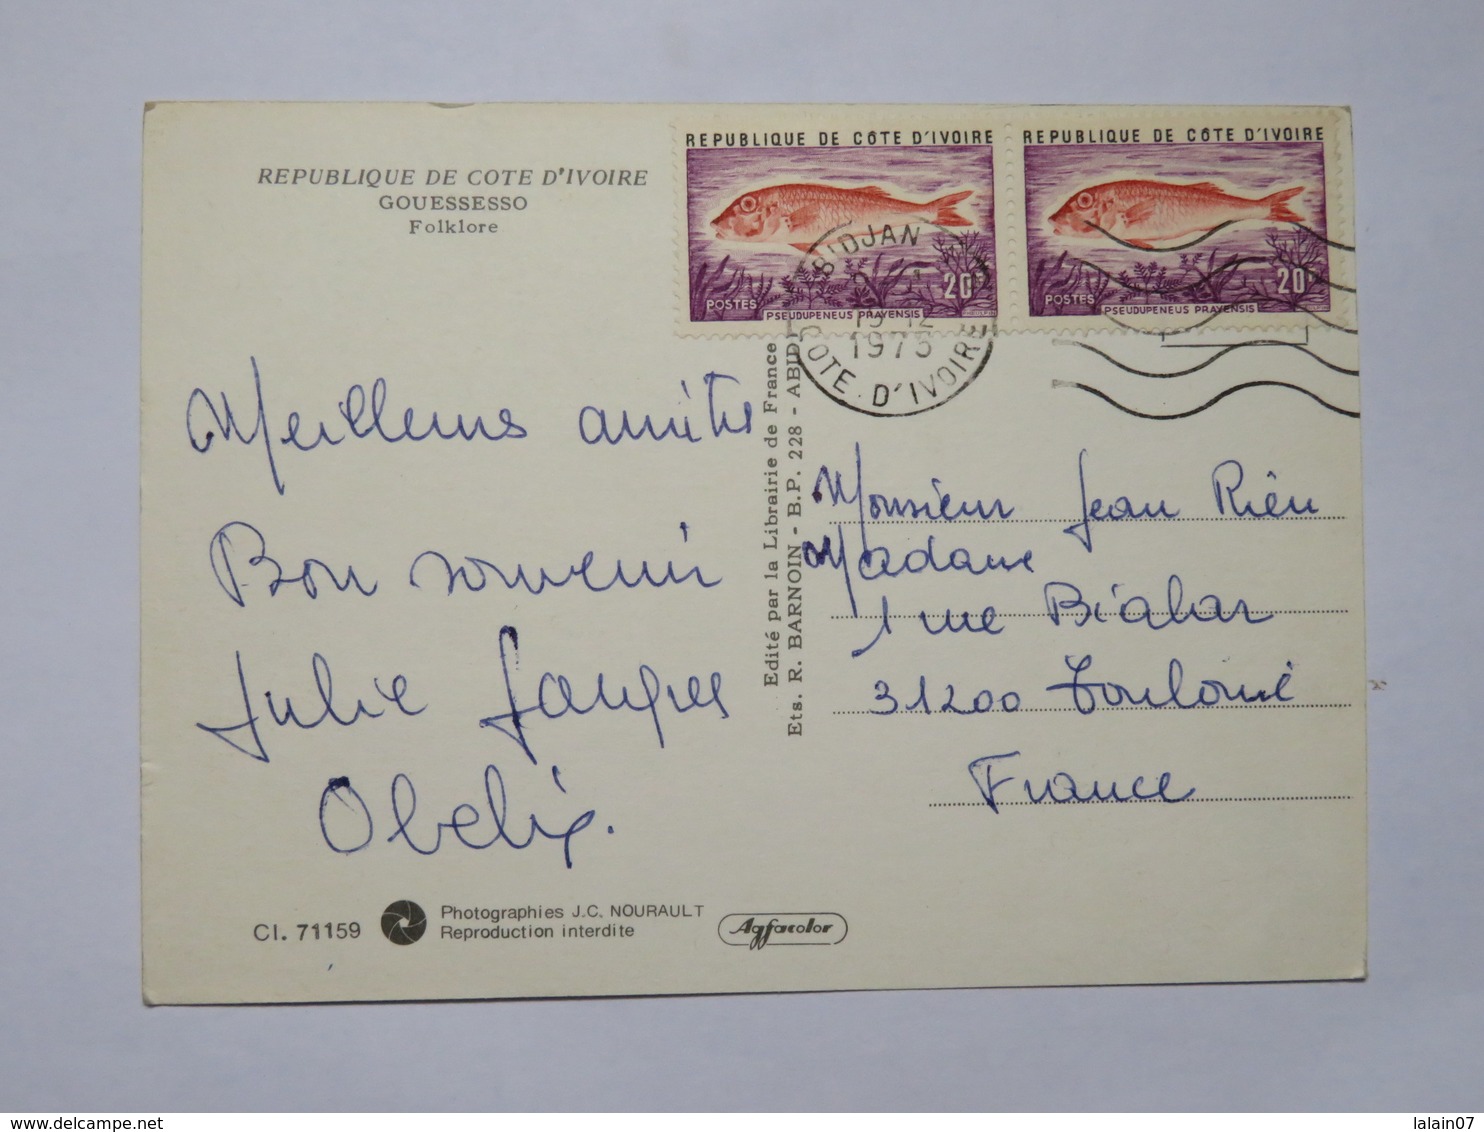 REPUBLIQUE DE COTE D'IVOIRE
GOUESSESSO
Folklore
REPUBLIQUE DE CÔTE D'IVOIRE
20F
POSTES
PSEUDUPENEUS PRAYENSIS
REPUBLIQUE DE CÔTE D'IVOIRE
20F
POSTES
PSEUDUPENEUS PRAYENSIS
ABIDJAN
19-12
1973
COTE D'IVOIRE
Meilleures amitiés
Bon souvenir
Julie
Obelix.
Edité par la Librairie de France
Ets. R. BARNOIN - B.P. 228 - ABIDJ
Monsieur Jean
Madame
1 rue
31200 Toulouse
France
Cl. 71159
Photographies J.C. NOURAULT
Reproduction interdite
Agfacolor
lalain07